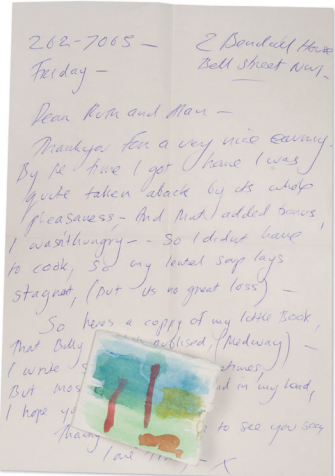 262-7065 –
2 Bendall House
Bell Street NW1.
Friday –
Dear Ruth and Alan –
Thankyou for a very nice evening.
By the time I got home I was
quite taken aback by its whole
pleasaness, – And that added bonus,
I wasn't hungry - - So I didnt have
to cook, so my lentil soup lays
stagnet, (but its no great loss) –
So heres a copy of my little Book,
That Billy publised, (Medway) –
I write
But in my head,
I hope to see you soon
love
X